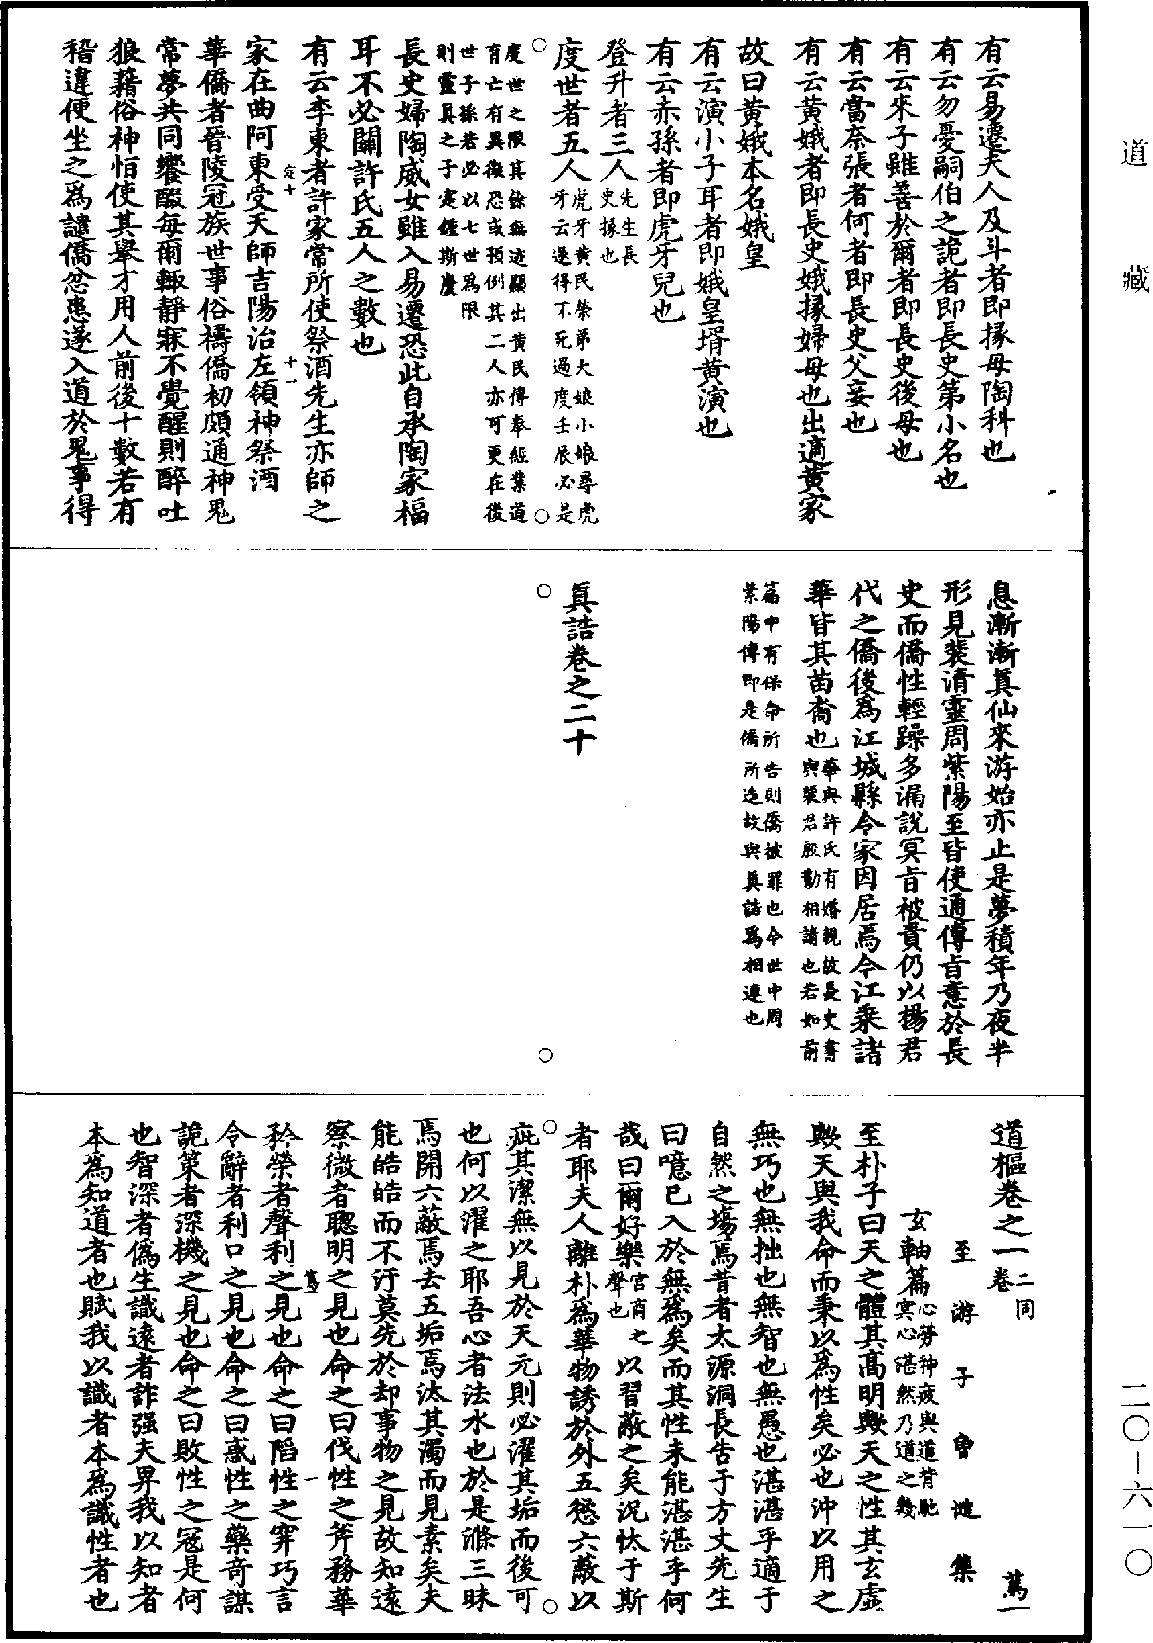 道藏
二〇—六一〇
有云易遷夫人及斗者即掾母陶科也
有云勿憂嗣伯之詭者即長史第小名也
有云來子雖善於爾者即長史後母也
有云當奈張者何者即長史父妾也
有云黃娥者即長史娥掾婦母也出適黃家
故曰黃娥本名娥皇
有云演小子耳者即娥皇壻黃演也
有云赤孫者即虎牙兒也
登升者三人先生長
史掾也
度世者五人虎牙黃民榮弟大娘小娘尋虎
牙云遂得不死過度壬辰必是
度世之限其餘無迹顯出黃民傳奉經業道
育亡有異徵恐或預例其二人亦可更在後
世子孫若必以七世爲限
則靈眞之子寔鍾斯慶
長史婦陶威女雖入易遷恐此自承陶家福
耳不必關許氏五人之數也
有云李東者許家常所使祭酒先生亦師之
家在曲阿東受天師吉陽治左領神祭酒
華僑者晉陵冠族世事俗禱僑初頗通神鬼
常夢共同饗醊每爾輙靜寐不覺醒則醉吐
狼藉俗神怕使其舉才用人前後十數若有
稽違便坐之爲譴僑忿患遂入道於鬼事得
息漸漸眞仙來游始亦止是夢積年乃夜半
形見裴清靈周紫陽至皆使通傳旨意於長
史而僑性輕躁多漏說冥旨被責仍以楊君
代之僑後爲江城縣令家因居焉今江乘諸
華皆其苗裔也華與許氏有婚親故長史書
與裴君殷勤相請也若如前
篇中有保命所告則僑被罪也今世中周
紫陽傳即是僑所造故與眞誥爲相連也
眞誥卷之二十
道樞卷之一二同
卷
篤一
至游子曾慥集
玄軸篇心勞神疲與道背馳
冥心湛然乃道之幾
至朴子曰天之體其高明歟天之性其玄虛
歟天與我命而秉以爲性矣必也沖以用之
無巧也無拙也無智也無愚也湛湛乎適于
自然之場焉昔者太源洞長告于方丈先生
曰噫已入於無爲矣而其性未能湛湛乎何
哉曰爾好樂宮商之
聲也以習蔽之矣況怢于斯
者耶夫人離朴爲華物誘於外五慾六蔽以
疵其潔無以見於天元則必濯其垢而後可
也何以濯之耶吾心者法水也於是滌三昧
焉開六蔽焉去五垢焉汰其濁而見素矣夫
能皓皓而不汙莫先於却事物之見故知遠
察微者聰明之見也命之曰伐性之斧務華
矜榮者聲利之見也命之曰陷性之穽巧言
令辭者利口之見也命之曰惑性之藥奇謀
詭策者深機之見也命之曰敗性之冦是何
也智深者僞生識遠者詐强夫畀我以知者
本爲知道者也賦我以識者本爲識性者也